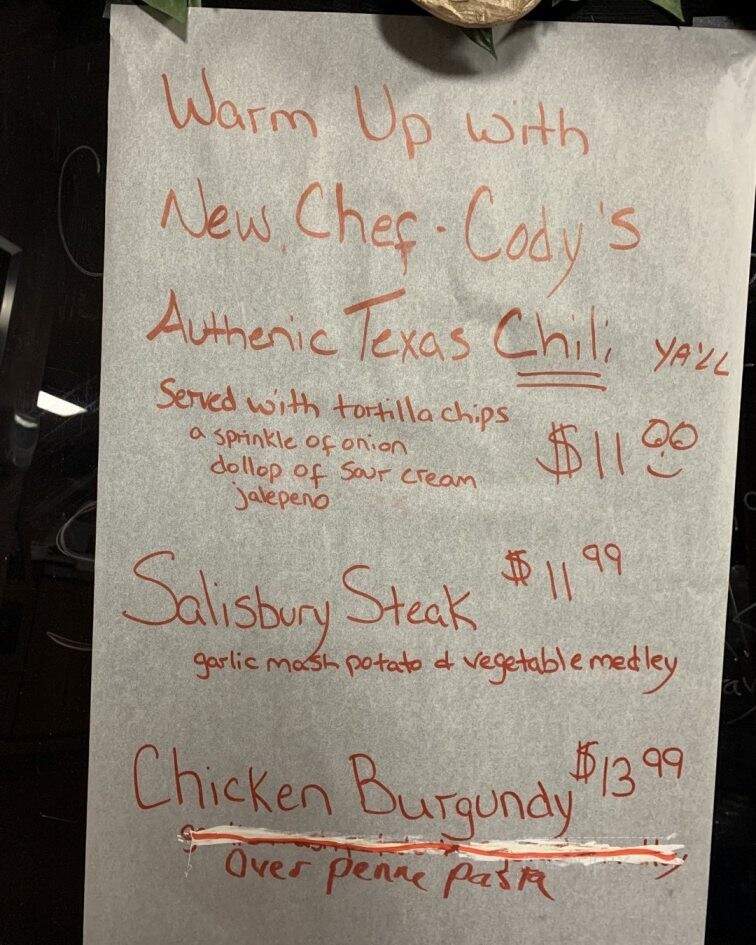 Warm Up with
New Chef - Cody's
Authenic Texas Chili YA'LL
Served with tortilla chips
a sprinkle of onion
dollop of sour cream
jalepeno
$11.00
Salisbury Steak $11.99
garlic mash potato & vegetable medley
Chicken Burgundy $13.99
Over penne pasta